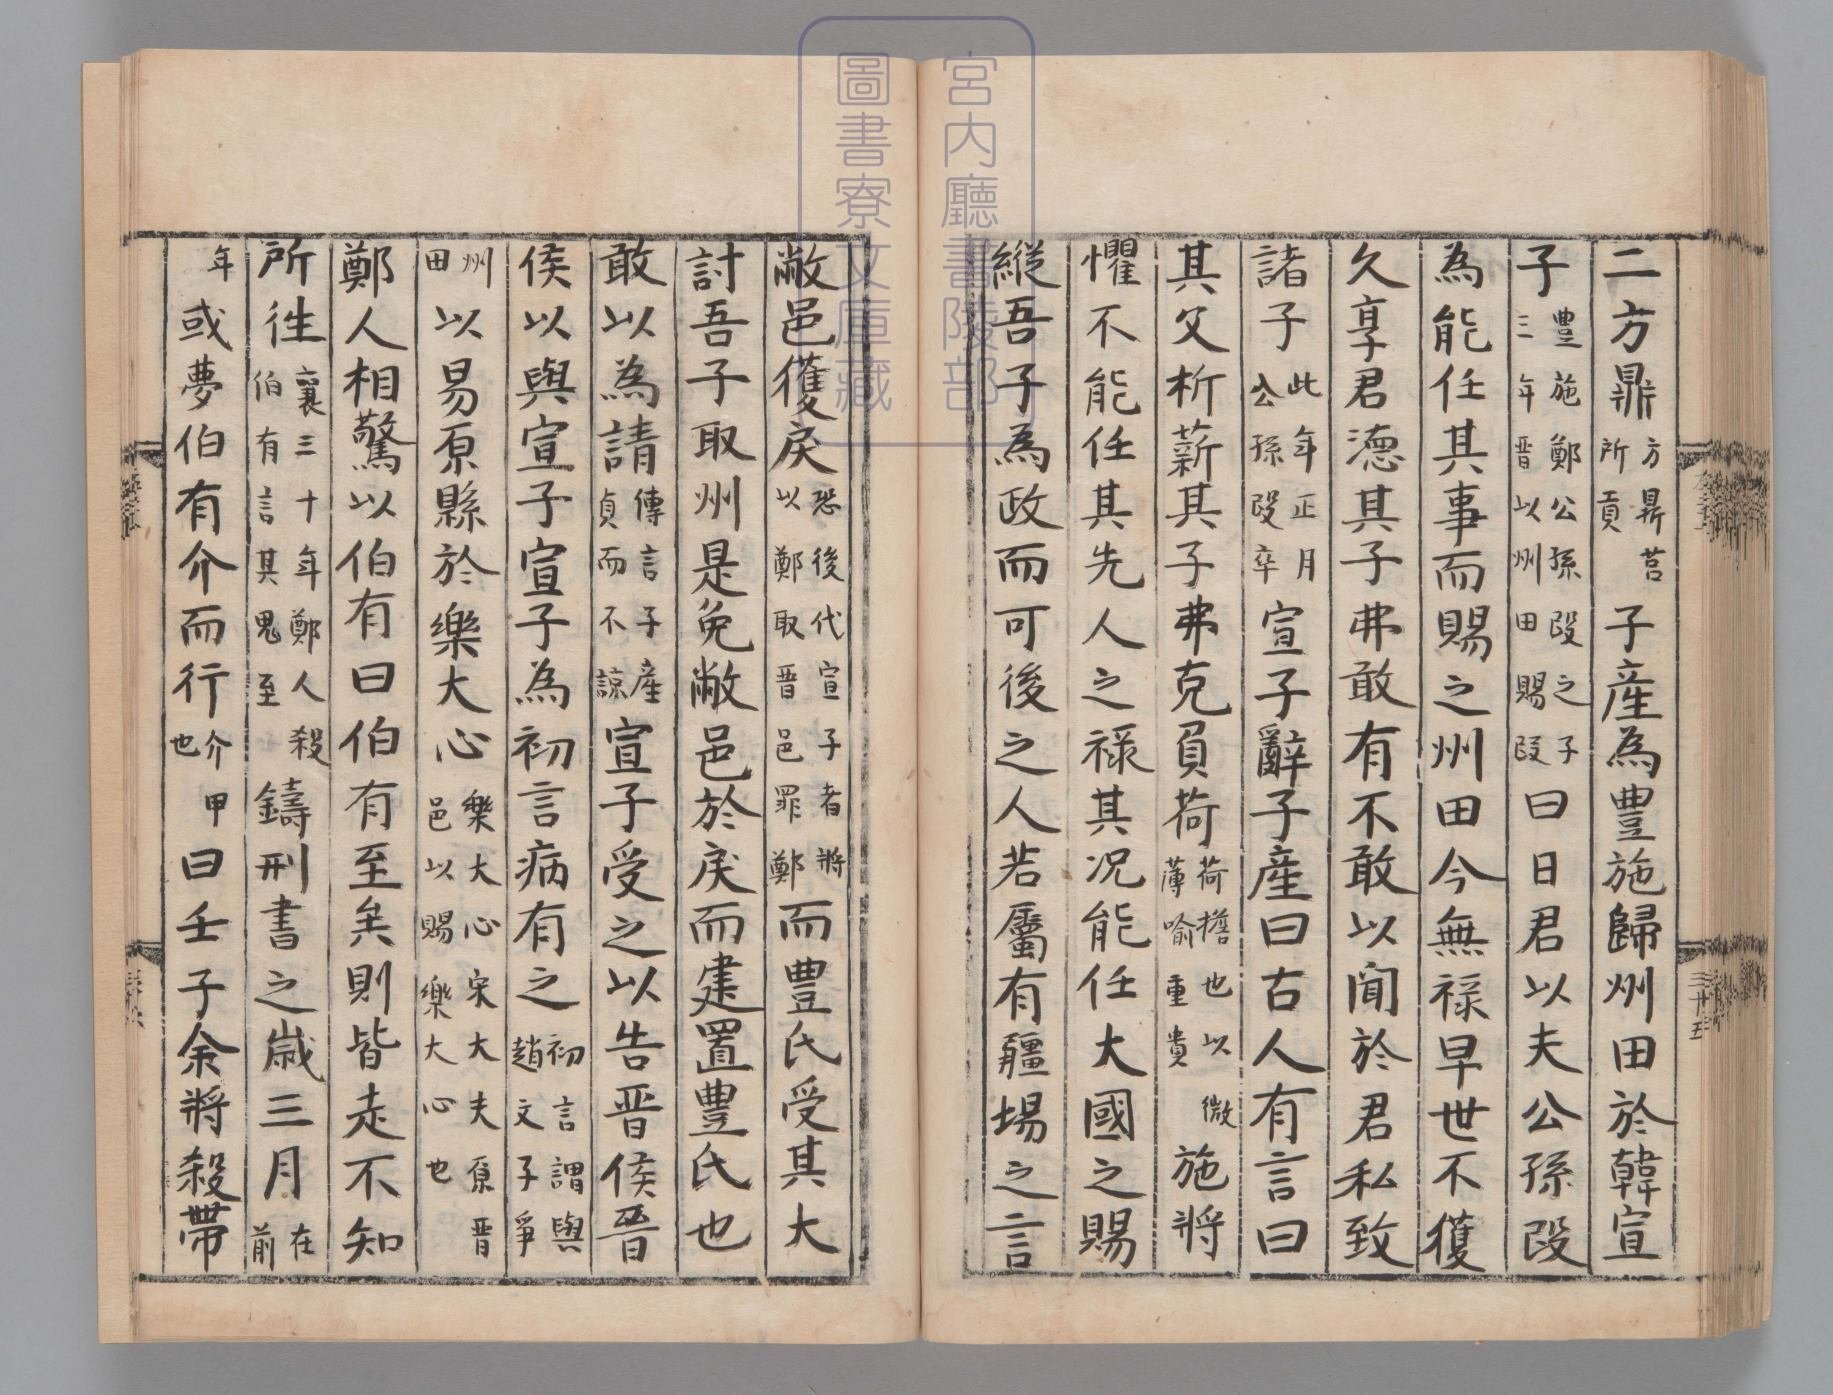 二方鼎方鼎莒所貢子産為豊施歸州田於韓宣
子豊施鄭公孫段之子三年晋以州田賜段曰日君以夫公孫段
為能任其事而賜之州田今無禄早世不獲
久享君德其子弗敢有不敢以聞於君私致
諸子此年正月公孫段卒宣子辭子産曰古人有言曰
其父析薪其子弗克負荷荷擔也以微薄喻重貴施將
懼不能任其先人之禄其况能任大國之賜
縦吾子為政而可後之人若屬有疆埸之言
敝邑獲戾恐後代宣子者將以鄭取晋邑罪鄭而豊氏受其大
討吾子取州是免敝邑於戾而建置豊氏也
敢以為請傳言子産貞而不諒宣子受之以告晋侯晋
侯以與宣子宣子為初言病有之初言謂與趙文子爭
州田以易原縣於樂大心樂大心宋大夫原晋邑以賜樂大心也
鄭人相驚以伯有曰伯有至矣則皆走不知
所往襄三十年鄭人殺伯有言其鬼至鑄刑書之歳三月在前
年或夢伯有介而行介甲也曰壬子余將殺帶
三十五
宮内廳書陵部
圖書寮文庫藏